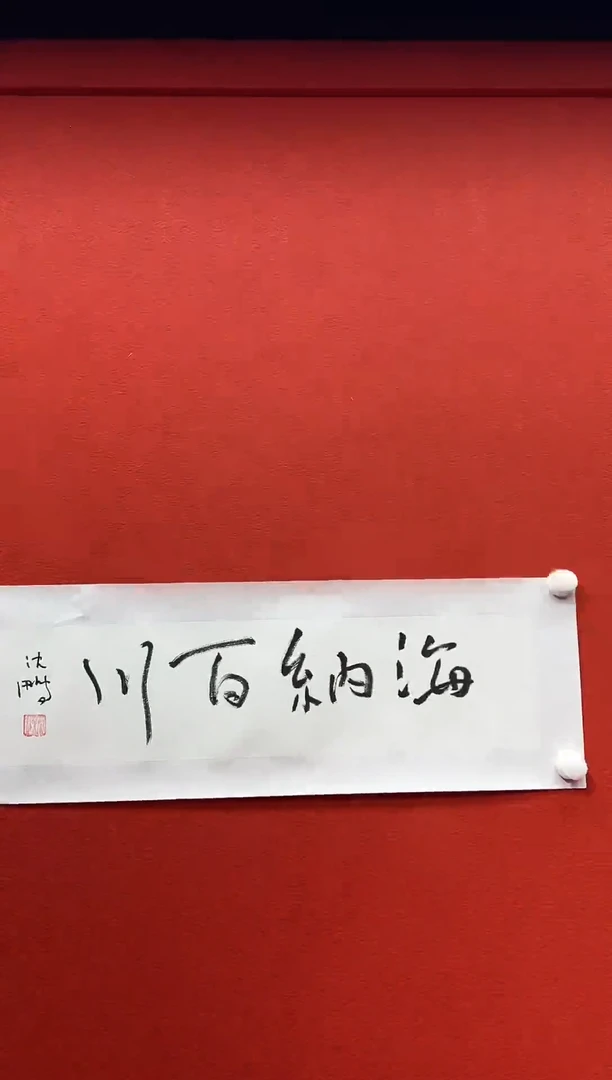 海納百川
沈鹏